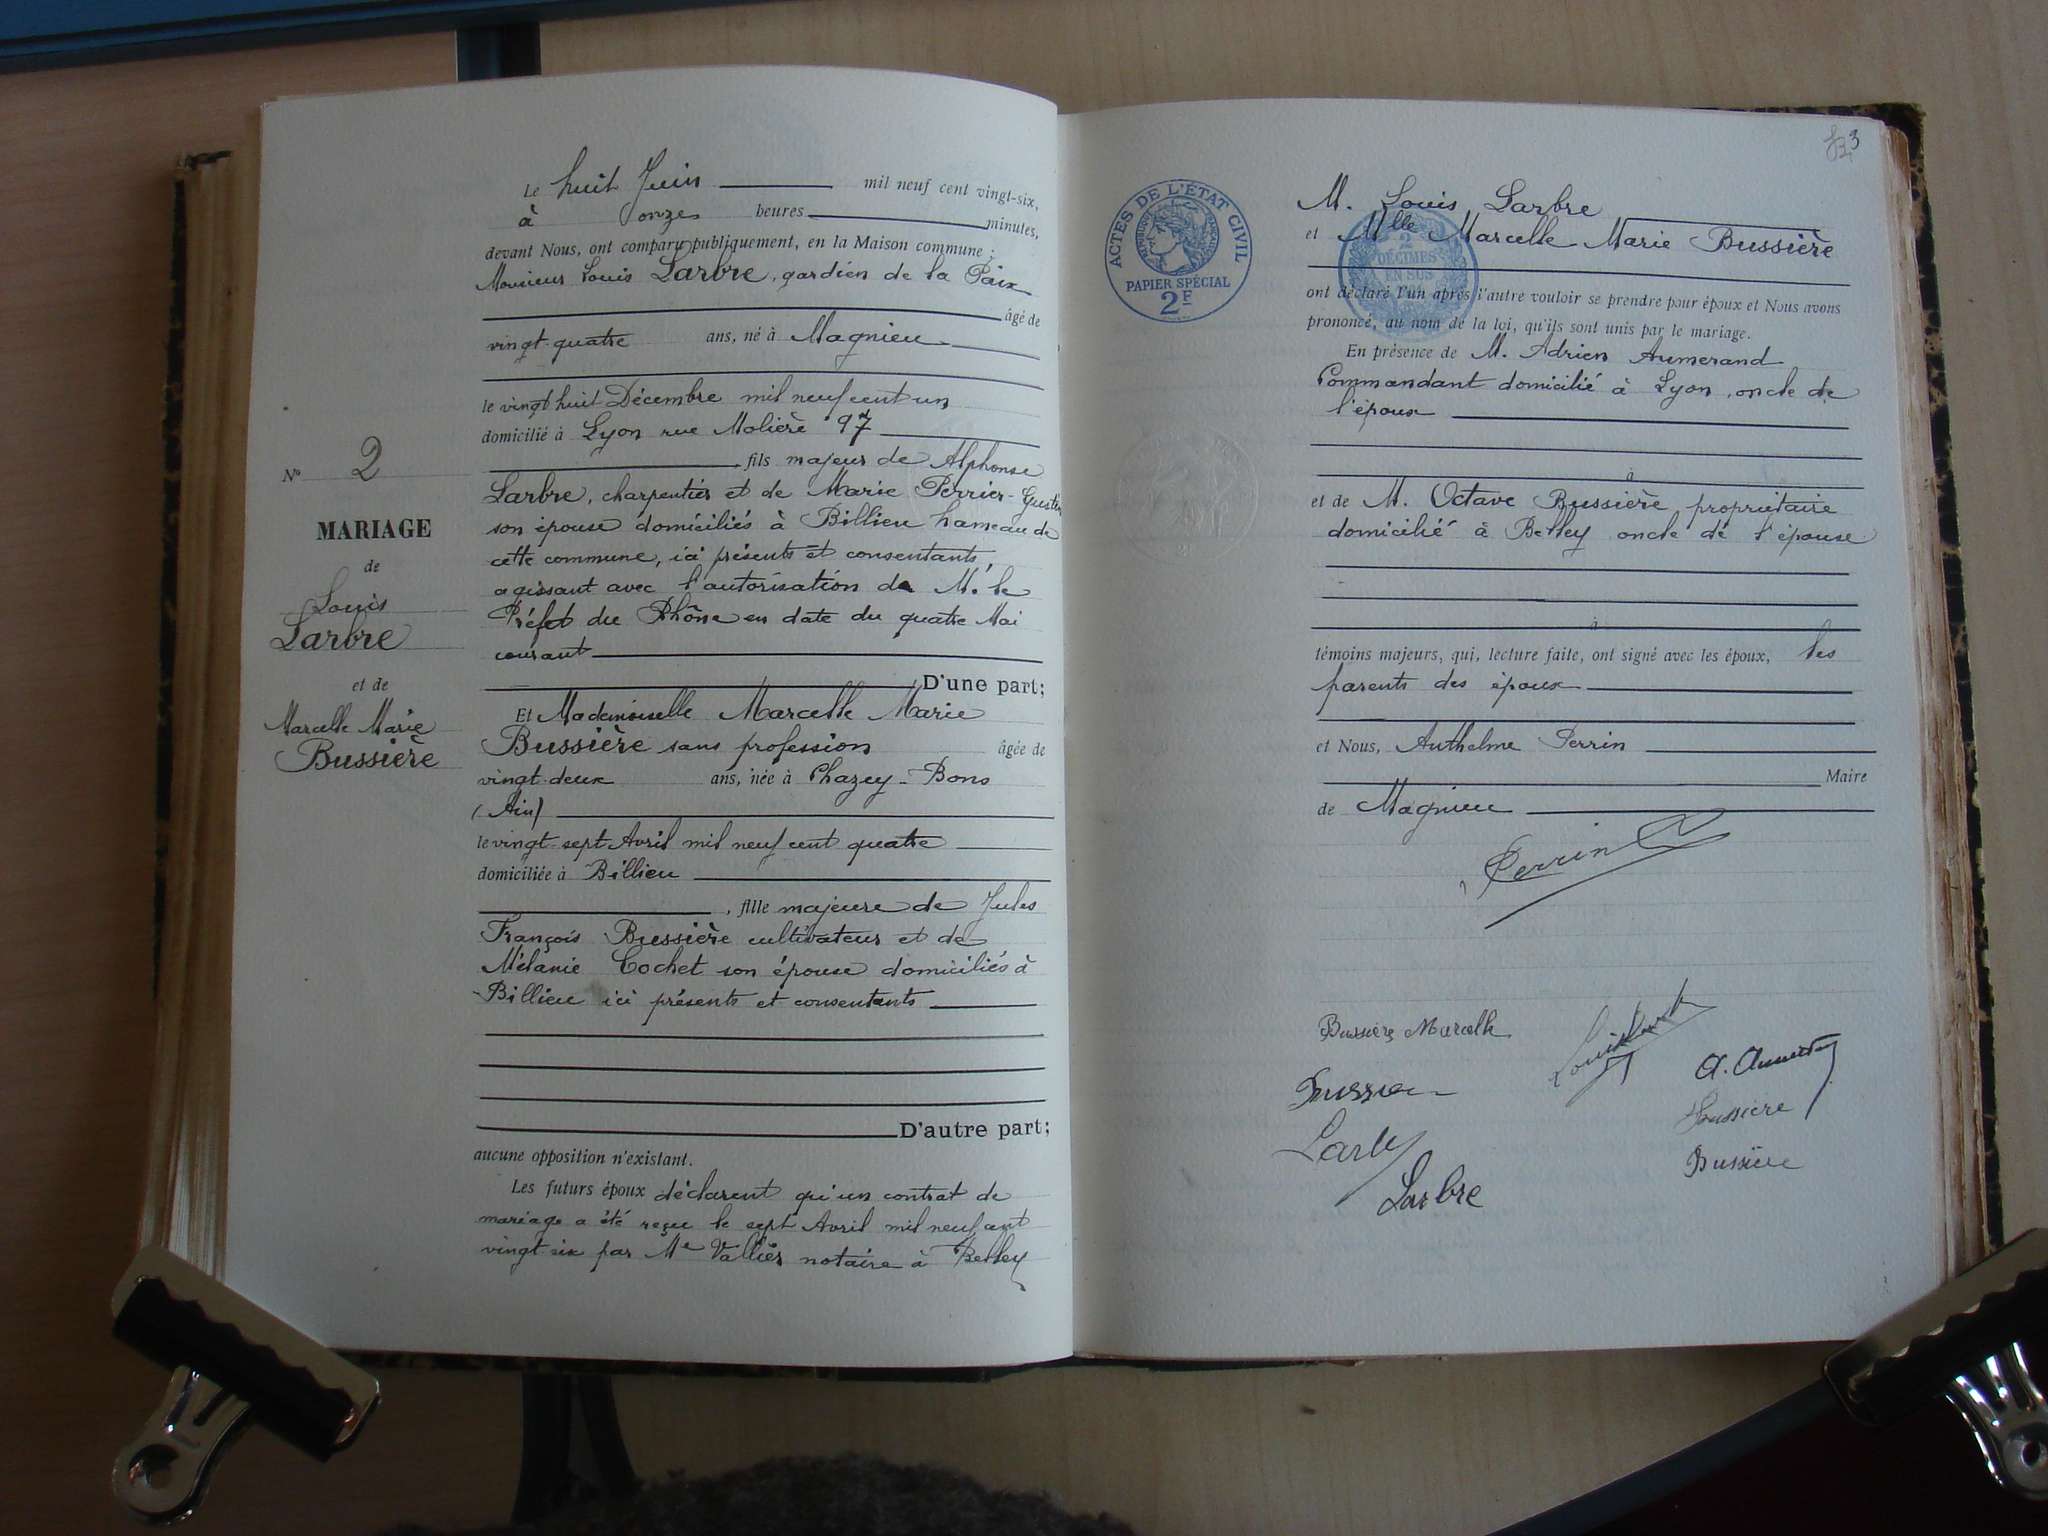 Le huit Juin mil neuf cent vingt-six,
à onze heures minutes,
devant Nous, ont comparu publiquement, en la Maison commune :
Monsieur Louis Larbre, gardien de la Paix
âgé de
vingt-quatre ans, né à Magnieu
le vingt huit Décembre mil neuf cent un
domicilié à Lyon rue Molière 97
, fils majeur de Alphonse
Larbre, charpentier et de Marie Perrier-Gustin
son épouse domiciliés à Billieu hameau de
cette commune, ici présents et consentants,
agissant avec l'autorisation de M. le
Préfet du Rhône en date du quatre Mai
courant
D'une part;
Et Mademoiselle Marcelle Marie
Bussière sans profession âgée de
vingt-deux ans, née à Chazey-Bons
(Ain)
le vingt-sept Avril mil neuf cent quatre
domiciliée à Billieu
, fille majeure de Jules
François Bussière cultivateur et de
Mélanie Cochet son épouse domiciliés à
Billieu ici présents et consentants
D'autre part;
aucune opposition n'existant.
Les futurs époux déclarent qu'un contrat de
mariage a été reçu le sept Avril mil neuf cent
vingt-six par Me Vallier notaire à Belley
No 2
MARIAGE
de
Louis
Larbre
et de
Marcelle Marie
Bussière
3
ACTES DE L'ÉTAT CIVIL
RÉPUBLIQUE FRANÇAISE
PAPIER SPÉCIAL
2F
2
DÉCIMES
EN SUS
M. Louis Larbre
et Mlle Marcelle Marie Bussière
ont déclaré l'un après l'autre vouloir se prendre pour époux et Nous avons
prononcé, au nom de la loi, qu'ils sont unis par le mariage.
En présence de M. Adrien Aumerand
Commandant domicilié à Lyon, oncle de
l'époux
à
et de M. Octave Bussière propriétaire
domicilié à Belley oncle de l'épouse
à
témoins majeurs, qui, lecture faite, ont signé avec les époux, les
parents des époux
et Nous, Anthelme Perrin
Maire
de Magnieu
Perrin
Bussière Marcelle
Bussière
Larbre
Bussière